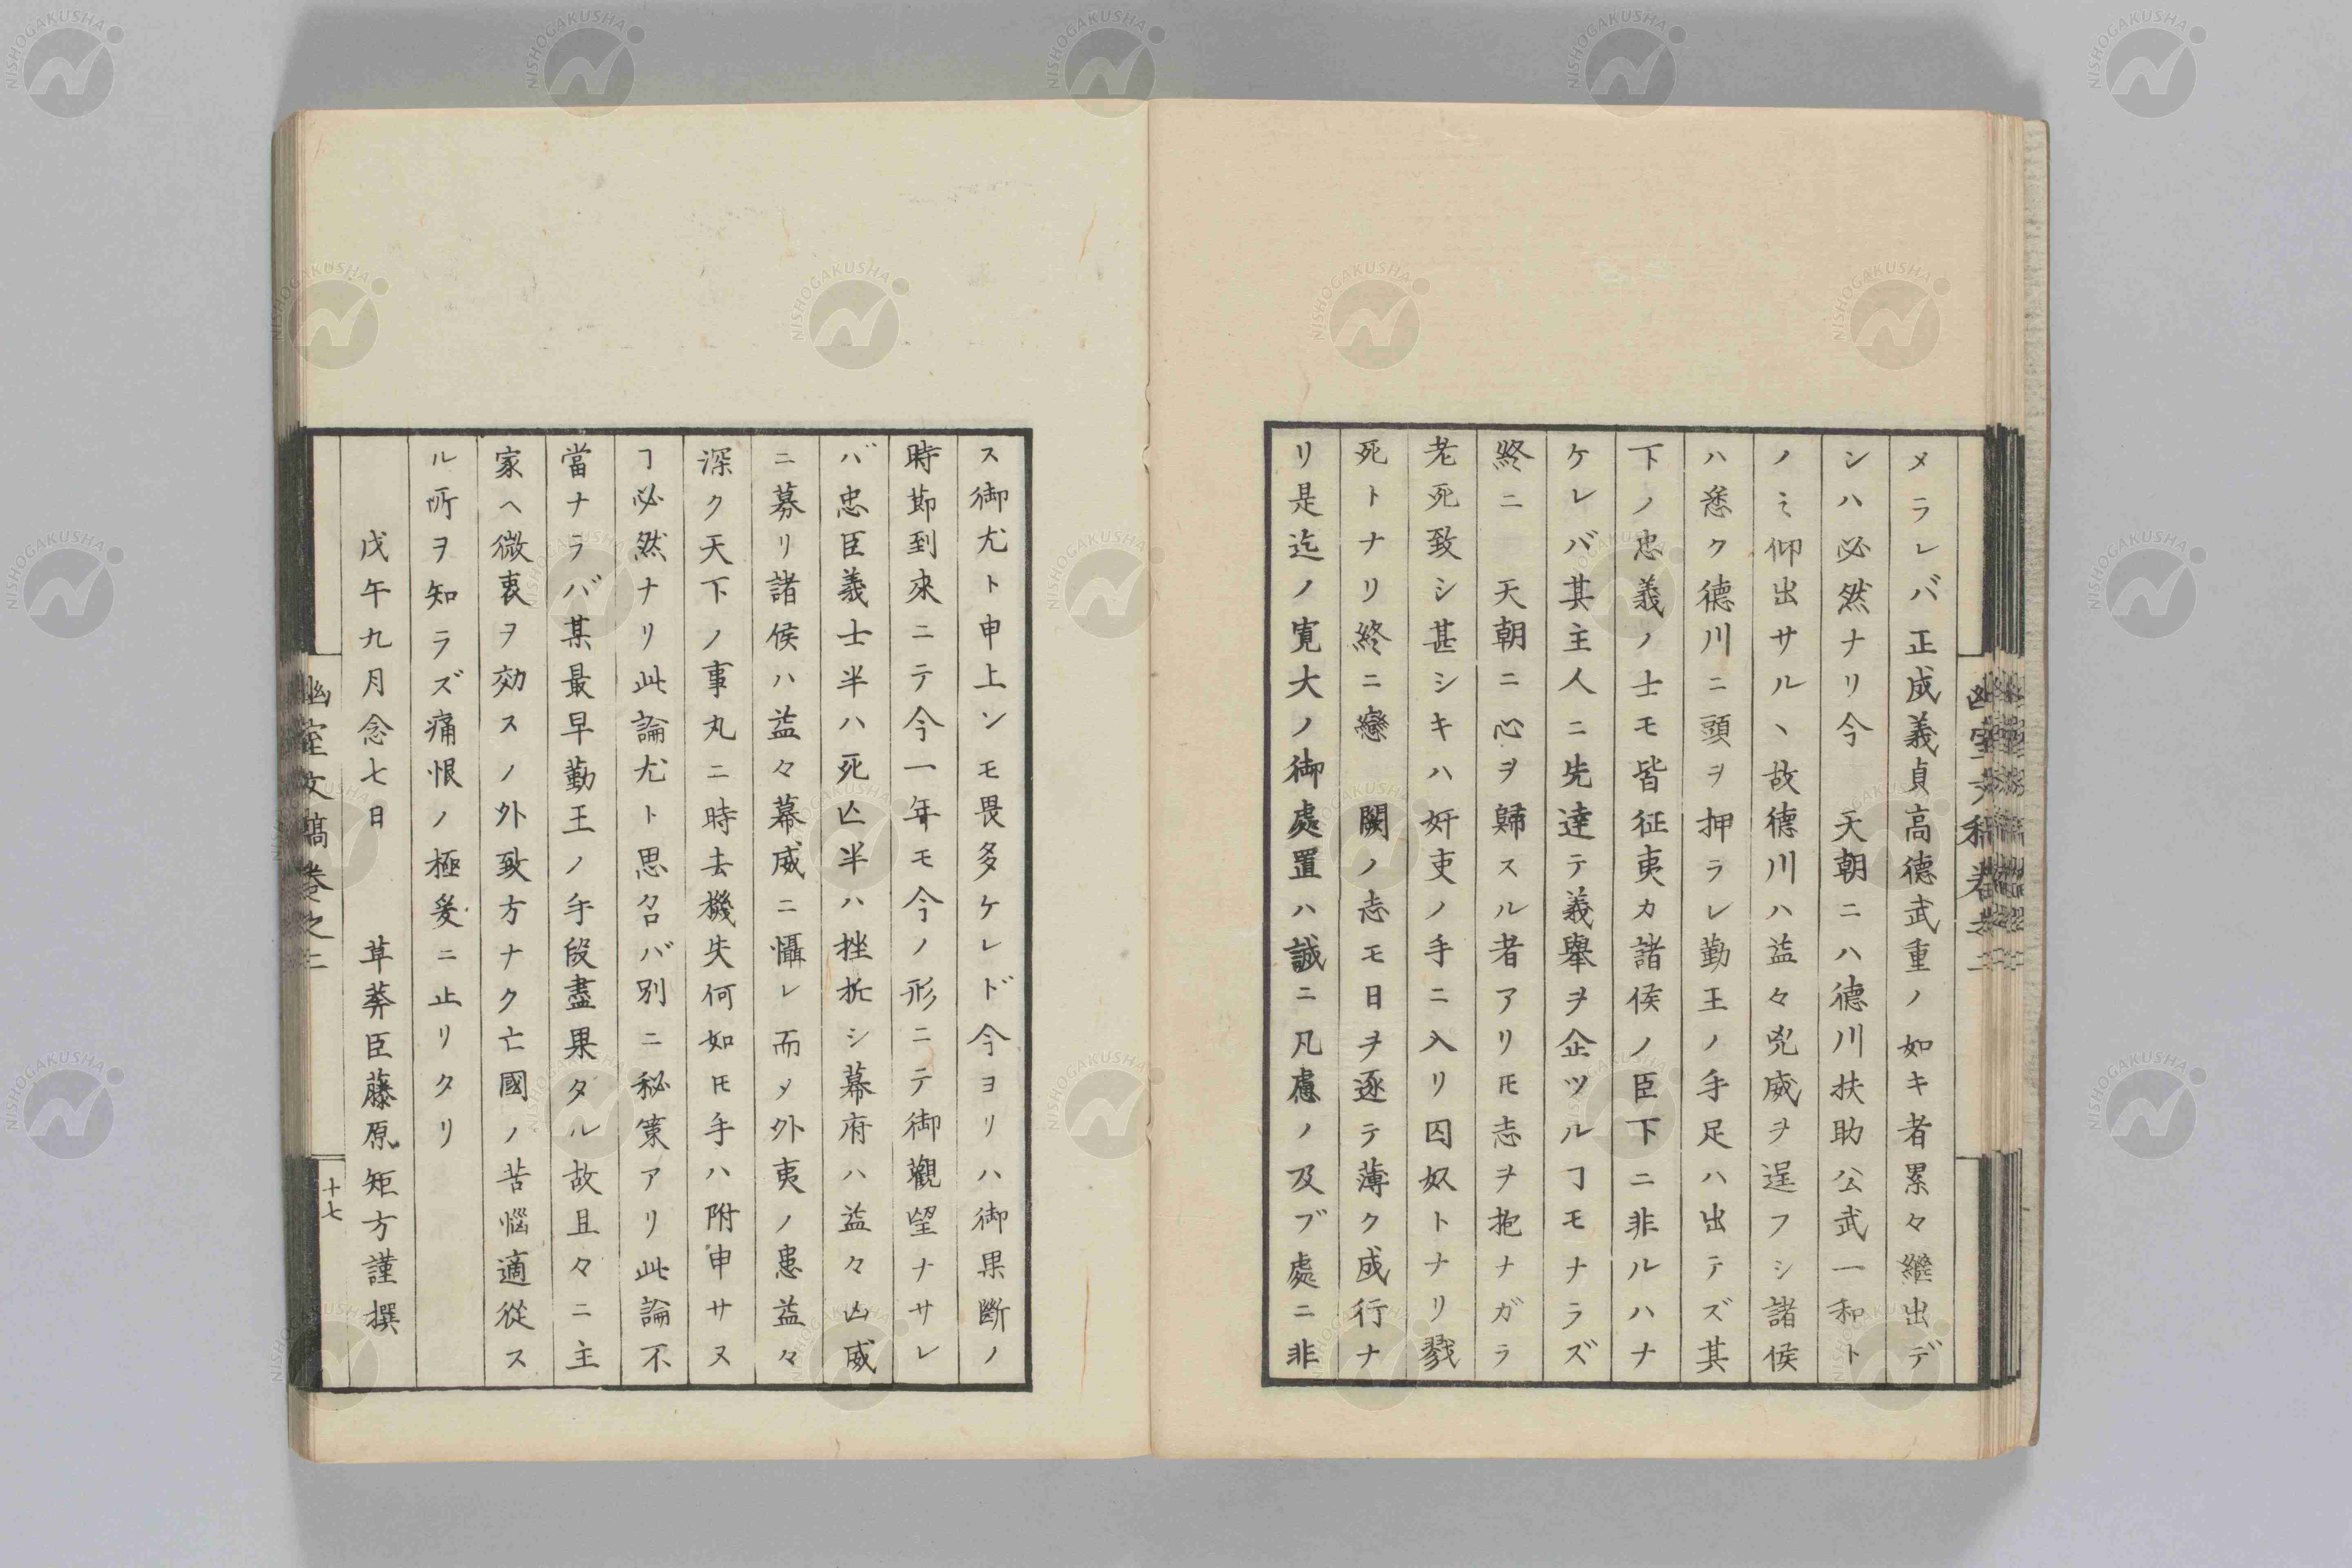 メラレバ正成義貞高德武重ノ如キ者累々繼出デ
シハ必然ナリ今　天朝ニハ德川扶助公武一和ト
ノミ仰出サルヽ故德川ハ益々兇威ヲ逞フシ諸侯
ハ悉ク德川ニ頭ヲ押ラレ勤王ノ手足ハ出テズ其
下ノ忠義ノ士モ皆征夷カ諸侯ノ臣下ニ非ルハナ
ケレバ其主人ニ先達テ義擧ヲ企ツルヿモナラズ
終ニ　天朝ニ心ヲ歸スル者アリ𪜈志ヲ抱ナガラ
老死致シ甚シキハ奸吏ノ手ニ入リ囚奴トナリ戮
死トナリ終ニ戀　闕ノ志モ日ヲ逐テ薄ク成行ナ
リ是迄ノ寛大ノ御處置ハ誠ニ凡慮ノ及ブ處ニ非
ス御尤ト申上ンモ畏多ケレド今ヨリハ御果斷ノ
時節到來ニテ今一年モ今ノ形ニテ御觀望ナサレ
バ忠臣義士半ハ死亡半ハ挫折シ幕府ハ益々凶威
ニ募リ諸侯ハ益々幕威ニ懾レ而〆外夷ノ患益々
深ク天下ノ事丸ニ時去機失何如𪜈手ハ附申サヌ
ヿ必然ナリ此論尤ト思召バ別ニ秘策アリ此論不
當ナラバ某最早勤王ノ手段盡果タル故且々ニ主
家ヘ微衷ヲ効スノ外致方ナク亡國ノ苦惱適從ス
ル所ヲ知ラズ痛恨ノ極爰ニ止リタリ
戊午九月念七日　　草莽臣藤原矩方謹撰
幽室文稿卷之二
十七
NISHOGAKUSHA